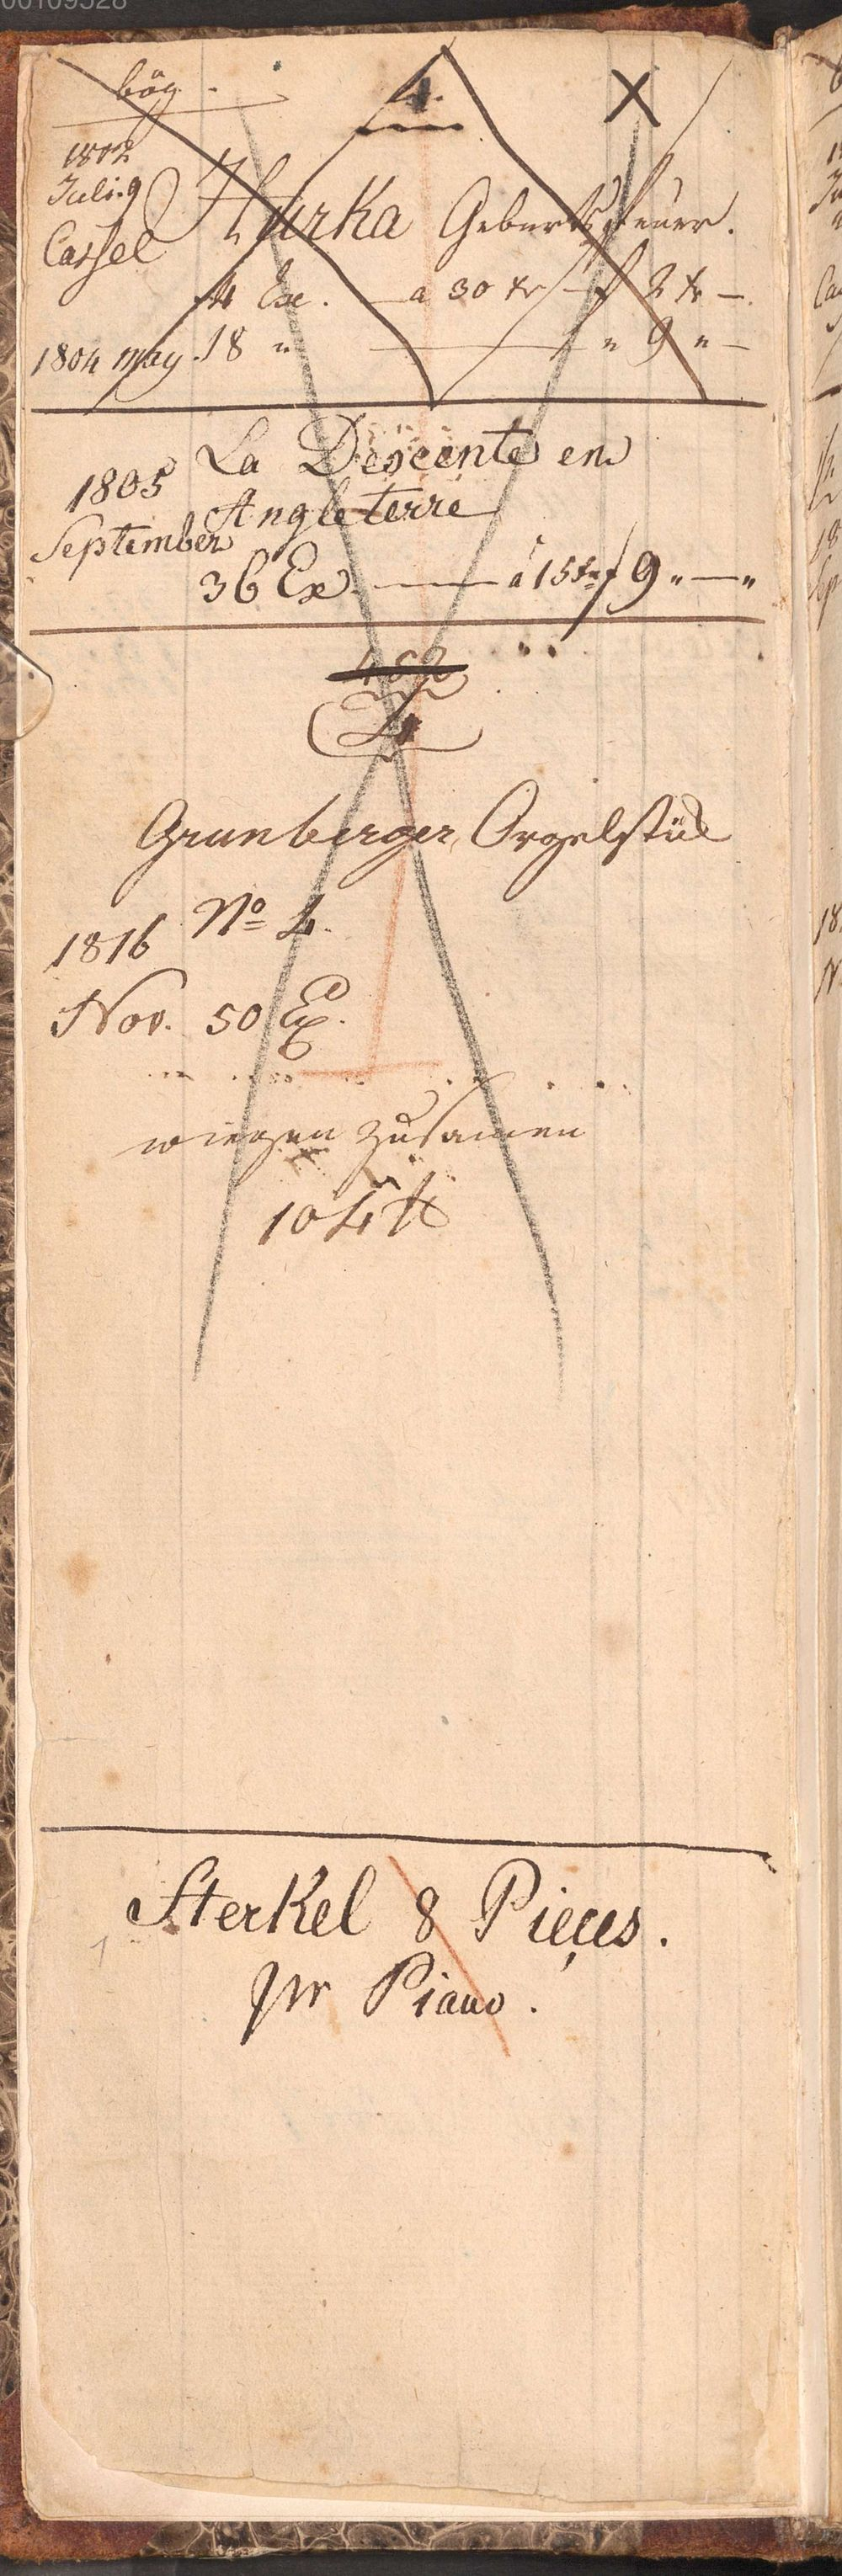 00109528
bög.
1.
X
1802
Juli. 9
Cassel
Hurka Geburtsfeuer.
4 Ex. — a 30 kr — f 2 kr —.
1804 may. 18 " — " 9 " —
1805
September
La Descente en
Angleterre
36 Ex. — a 15 kr f 9 " — "
Grünberger, Orgelstük
1816 No 4.
Nov. 50 Ex.
wiegen zusamen
104 ℔
Sterkel 8 Pieçes.
pr Piano.